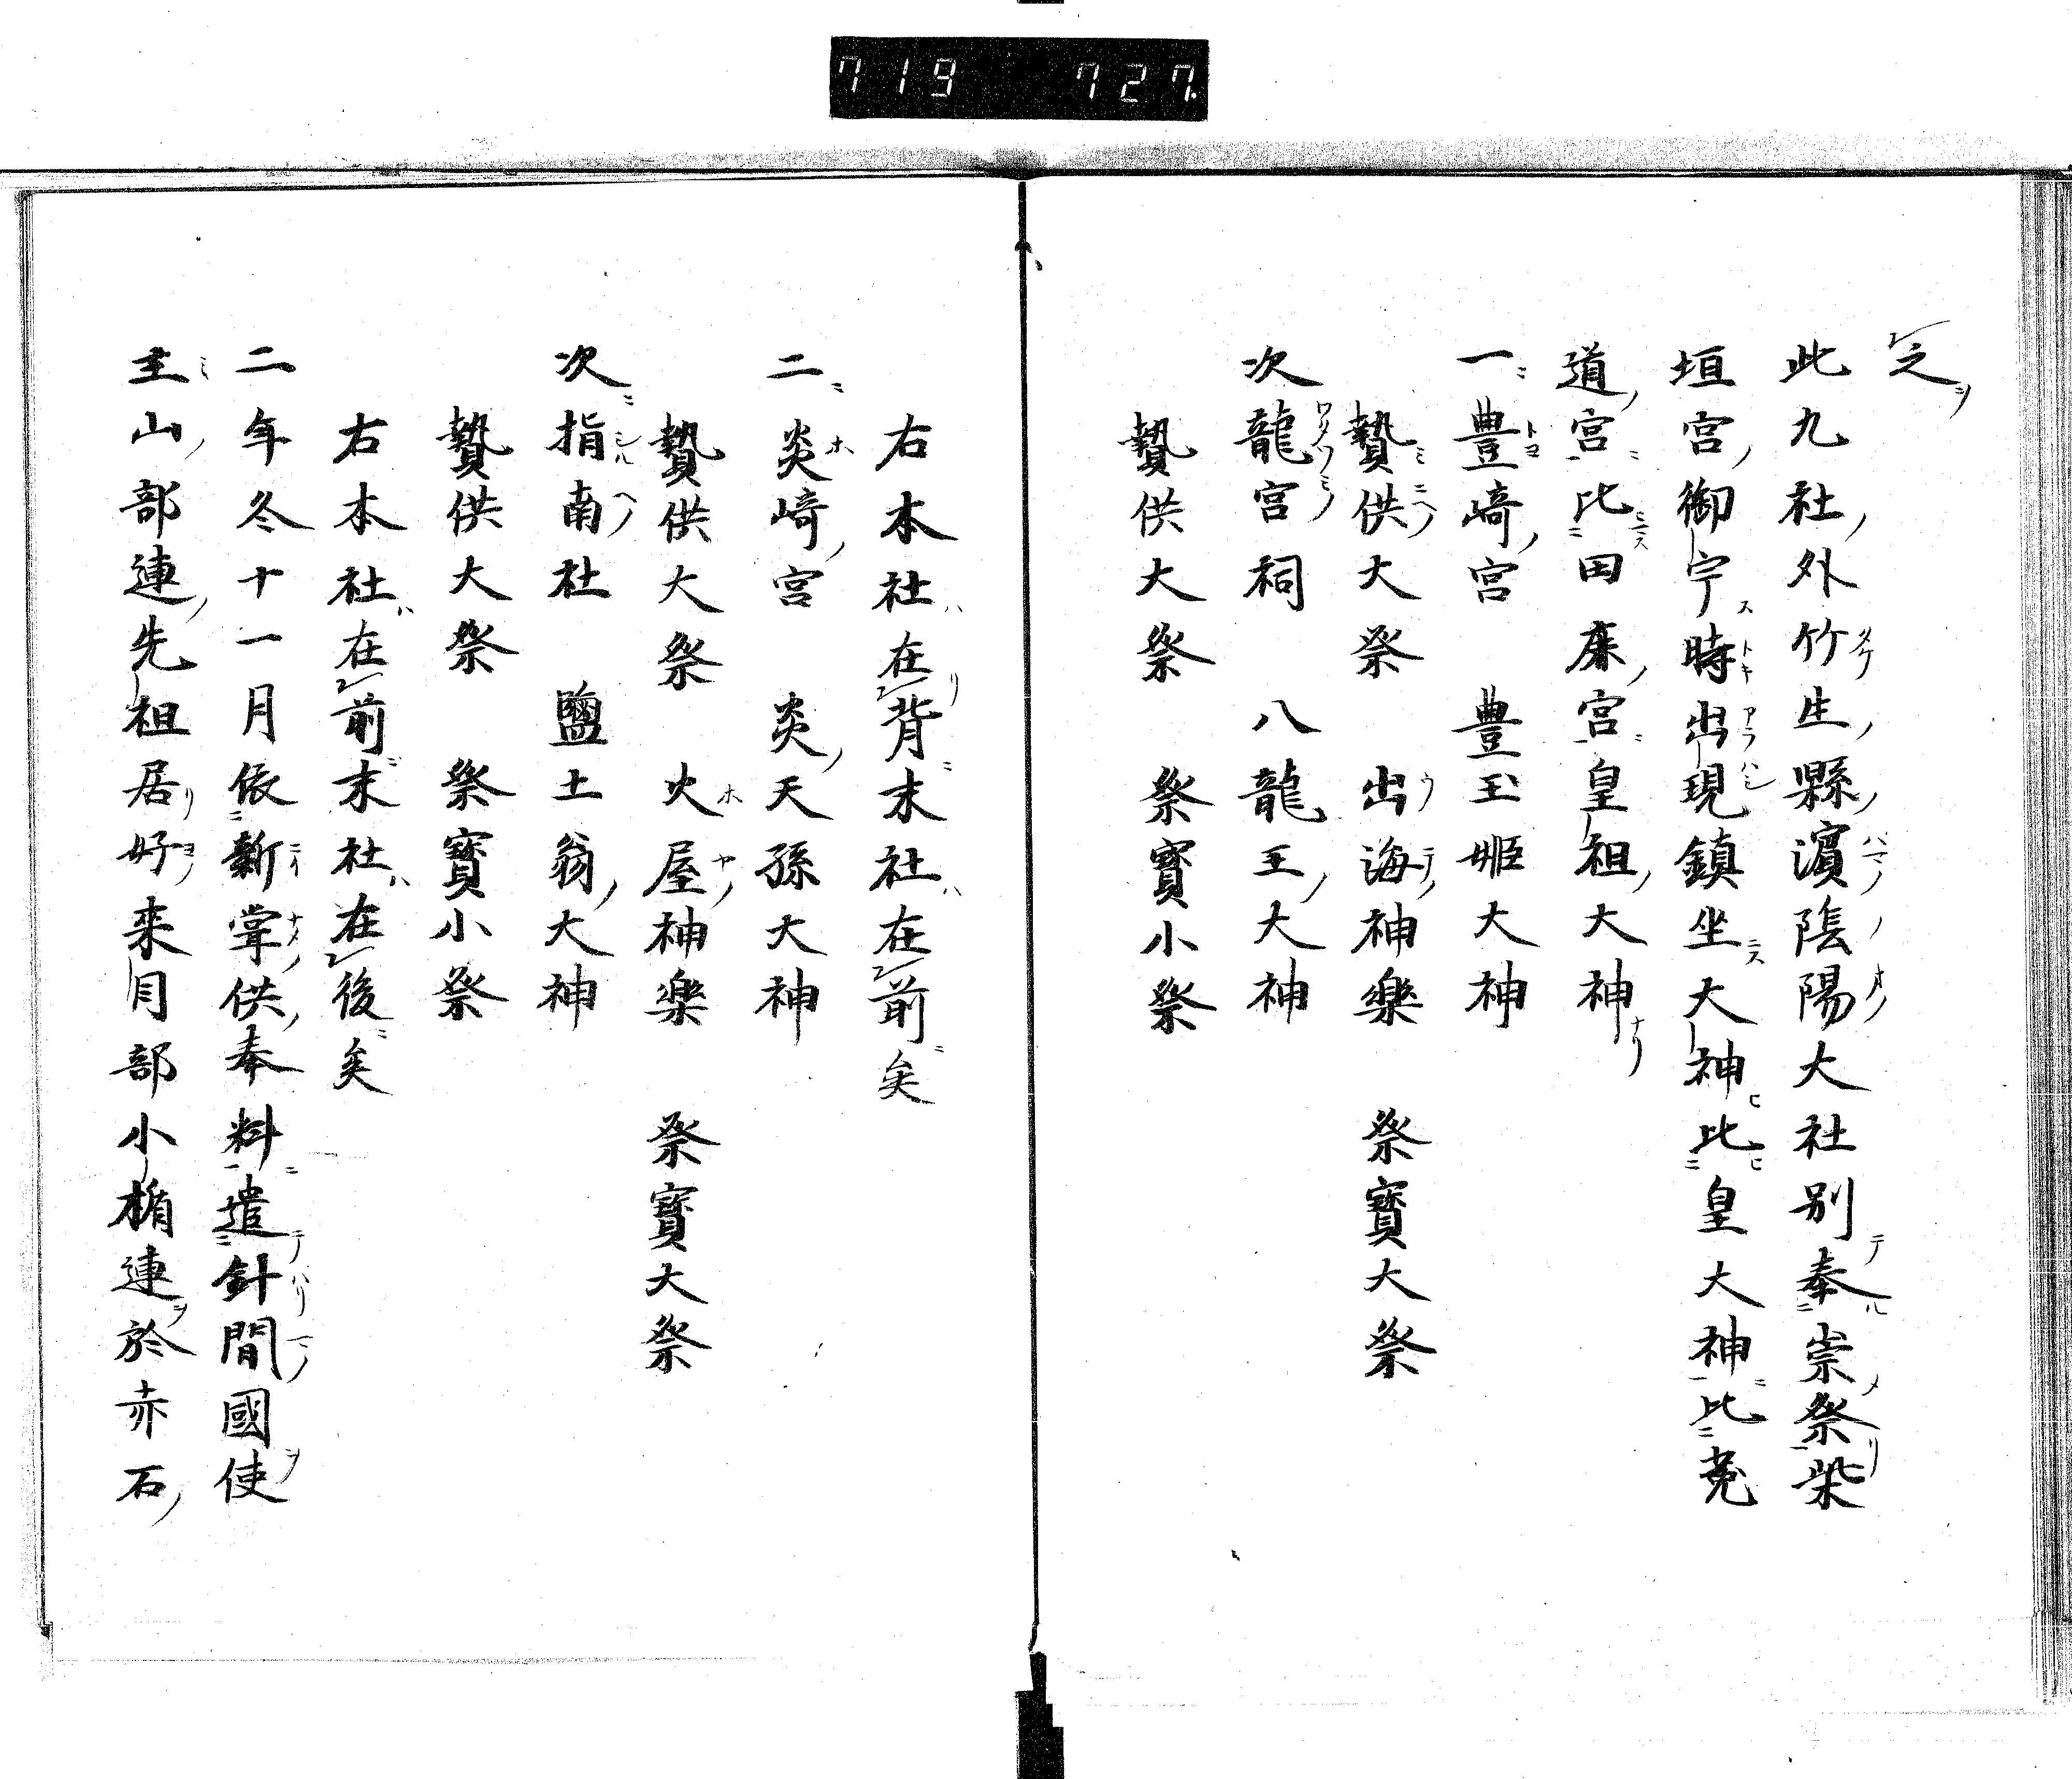 719 727
之ヲ
此九社外竹生縣濱陰陽大社別奉崇祭柴
垣宮御宁時出現鎮坐大神比皇大神比菟
道宮比田廉宮皇祖大神ナリ
一豊崎宮 豊玉姫大神
贄供大祭 出海神樂 祭寳大祭
次龍宮祠 八龍王大神
贄供大祭 祭寳小祭
右本社在背末社在前矣
二炎﨑宮 炎天孫大神
贄供大祭 火屋神樂 祭寳大祭
次指南社 鹽土翁大神
贄供大祭 祭寳小祭
右本社在前末社在後矣
二年冬十一月依新甞供奉料遣針間國使
主山部連先祖居好来目部小楯連於赤石